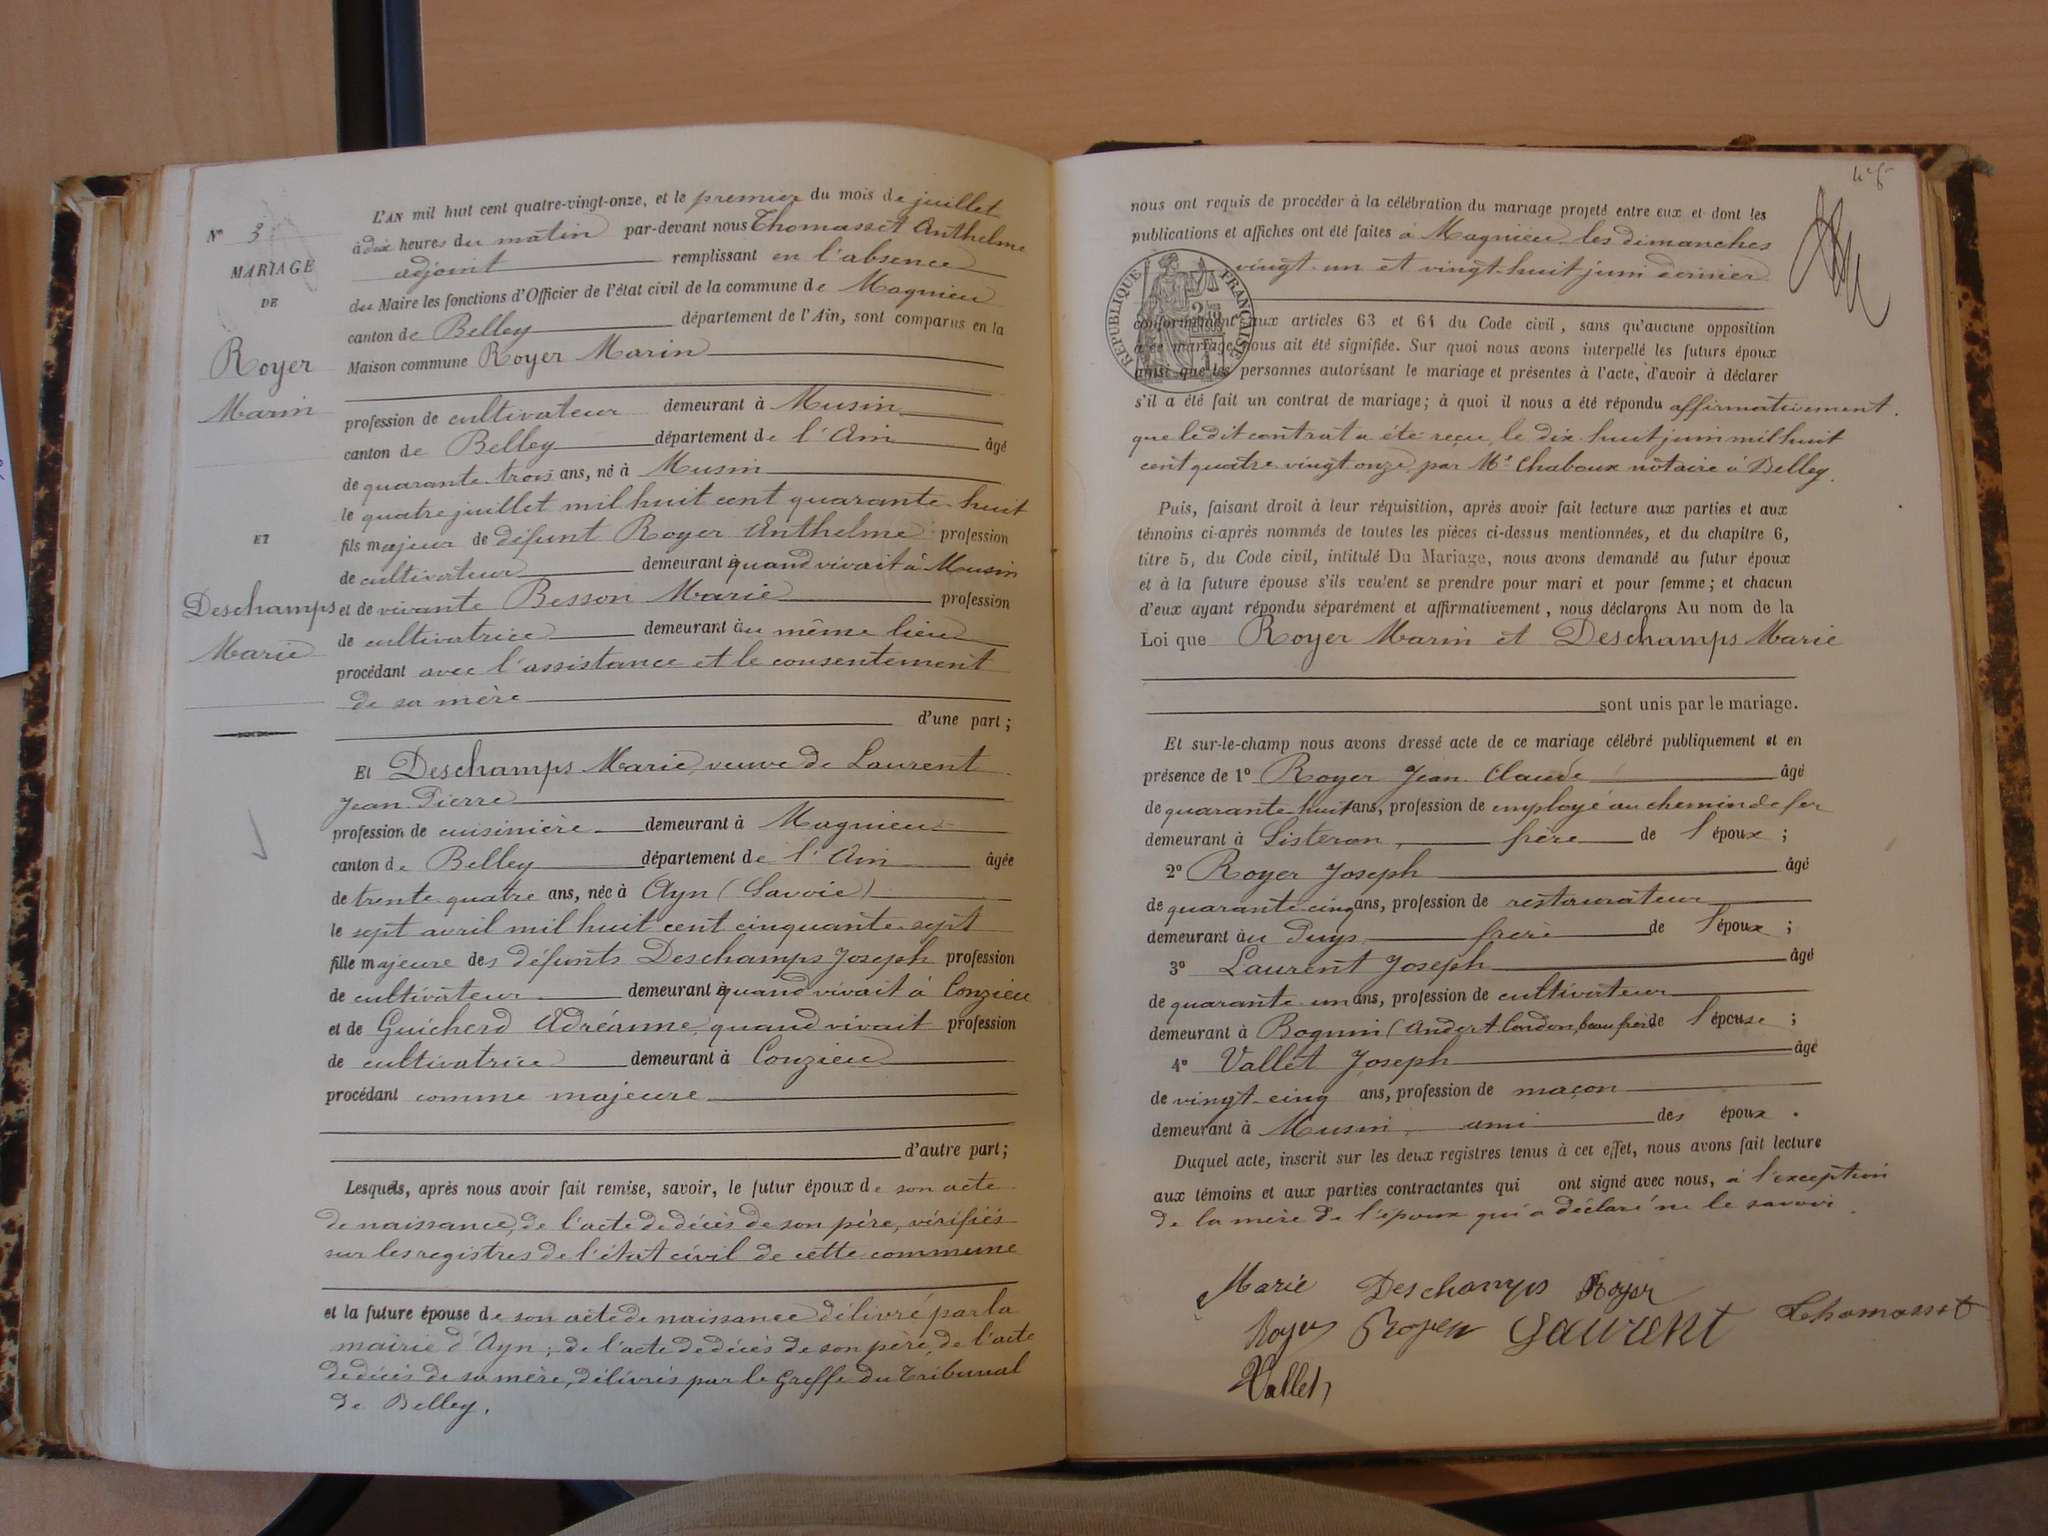 N° 3
MARIAGE
DE
Royer
Marin
ET
Deschamps
Marie
L'AN mil huit cent quatre-vingt-onze, et le premier du mois de juillet
à dix heures du matin par-devant nous Thomasset Anthelme
adjoint remplissant en l'absence
du Maire les fonctions d'Officier de l'état civil de la commune de Magnieu
canton de Belley département de l'Ain, sont comparus en la
Maison commune Royer Marin
profession de cultivateur demeurant à Musin
canton de Belley département de l'Ain âgé
de quarante trois ans, né à Musin
le quatre juillet mil huit cent quarante-huit
fils majeur de défunt Royer Anthelme profession
de cultivateur demeurant à quand vivait à Musin
et de vivante Besson Marie profession
de cultivatrice demeurant au même lieu
procédant avec l'assistance et le consentement
de sa mère
d'une part ;
Et Deschamps Marie, veuve de Laurent
Jean Pierre
profession de cuisinière demeurant à Magnieu
canton de Belley département de l'Ain âgée
de trente quatre ans, née à Ayn (Savoie)
le sept avril mil huit cent cinquante-sept
fille majeure des défunts Deschamps Joseph profession
de cultivateur demeurant à quand vivait à Conzieu
et de Guicherd Adréanne, quand vivait profession
de cultivatrice demeurant à Conzieu
procédant comme majeure
d'autre part ;
Lesquels, après nous avoir fait remise, savoir, le futur époux de son acte
de naissance, de l'acte de décès de son père, vérifiés
sur les registres de l'état civil de cette commune
et la future épouse de son acte de naissance délivré par la
mairie d'Ayn, de l'acte de décès de son père, de l'acte
de décès de sa mère, délivrés par le Greffe du Tribunal
de Belley.
nous ont requis de procéder à la célébration du mariage projeté entre eux et dont les
publications et affiches ont été faites à Magnieu les dimanches
vingt-un et vingt-huit juin dernier
RÉPUBLIQUE FRANÇAISE
conformément aux articles 63 et 64 du Code civil, sans qu'aucune opposition
à ce mariage nous ait été signifiée. Sur quoi nous avons interpellé les futurs époux
ainsi que les personnes autorisant le mariage et présentes à l'acte, d'avoir à déclarer
s'il a été fait un contrat de mariage ; à quoi il nous a été répondu affirmativement.
que le dit contrat a été reçu, le dix-huit juin mil huit
cent quatre vingt onze, par Me Chaboux notaire à Belley.
Puis, faisant droit à leur réquisition, après avoir fait lecture aux parties et aux
témoins ci-après nommés de toutes les pièces ci-dessus mentionnées, et du chapitre 6,
titre 5, du Code civil, intitulé Du Mariage, nous avons demandé au futur époux
et à la future épouse s'ils veulent se prendre pour mari et pour femme ; et chacun
d'eux ayant répondu séparément et affirmativement, nous déclarons Au nom de la
Loi que Royer Marin et Deschamps Marie
sont unis par le mariage.
Et sur-le-champ nous avons dressé acte de ce mariage célébré publiquement et en
présence de 1° Royer Jean Claude âgé
de quarante huit ans, profession de employé au chemin de fer
demeurant à Sisteron, frère de l'époux ;
2° Royer Joseph âgé
de quarante-cinq ans, profession de restaurateur
demeurant au Puys frère de l'époux ;
3° Laurent Joseph âgé
de quarante-un ans, profession de cultivateur
demeurant à Bognin (Andert-Condon, beau frère de l'épouse ;
4° Vallet Joseph âgé
de vingt-cinq ans, profession de maçon
demeurant à Musin, ami des époux.
Duquel acte, inscrit sur les deux registres tenus à cet effet, nous avons fait lecture
aux témoins et aux parties contractantes qui ont signé avec nous, à l'exception
de la mère de l'époux qui a déclaré ne le savoir.
Marie Deschamps Royer
Royer Royer Laurent Thomasset
Vallet